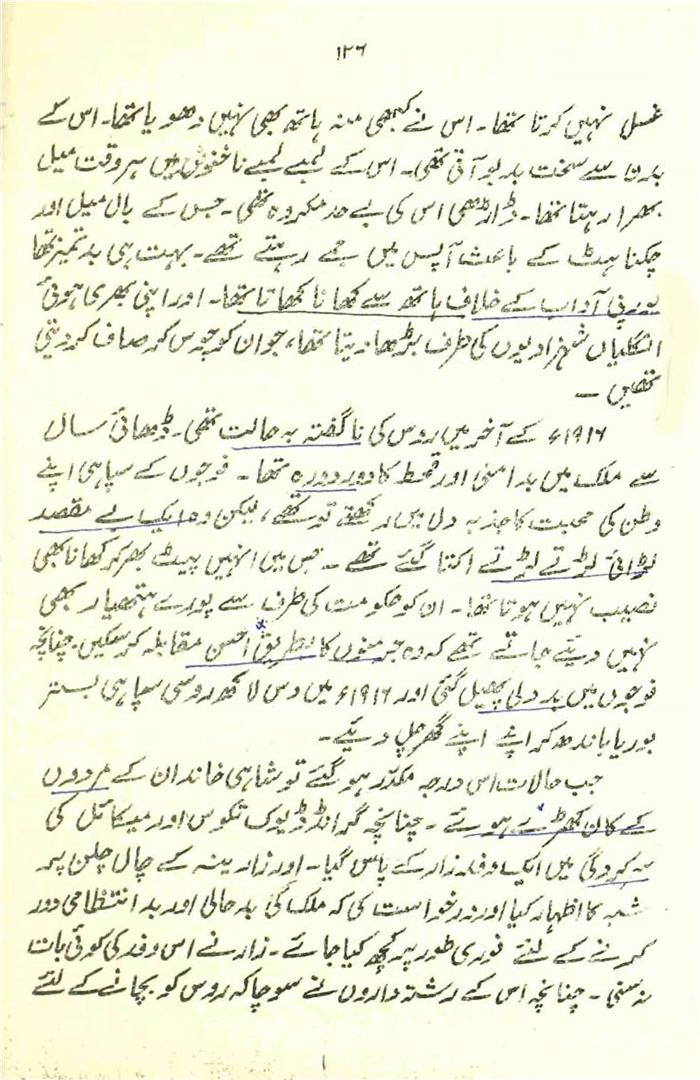 ۱۲۶
غسل نہیں کرتا تھا۔ اس نے کبھی منہ ہاتھ بھی نہیں دھویا تھا۔ اس کے
بدن سے سخت بدبو آتی تھی۔ اس کے لمبے لمبے ناخنوں میں ہر وقت میل
بھرا رہتا تھا۔ ڈاڑھی اس کی بے حد مکروہ تھی۔ جس کے بال میل اور
چکناہٹ کے باعث آپس میں جمے رہتے تھے۔ بہت ہی بدتمیز تھا
یورپی آداب کے خلاف ہاتھ سے کھانا کھاتا تھا۔ اور اپنی بھری ہوئی
انگلیاں شہزادیوں کی طرف بڑھا دیتا تھا، جو ان کو چوس کر صاف کر دیتی
تھیں ۔
۱۹۱۶ء کے آخر میں روس کی ناگفتہ بہ حالت تھی۔ ڈھائی سال
سے ملک میں بدامنی اور قحط کا دور دورہ تھا۔ فوجوں کے سپاہی اپنے
وطن کی محبت کا جذبہ دل میں رکھتے تو تھے، لیکن وہ ایک بے مقصد
لڑائی لڑتے لڑتے اکتا گئے تھے ۔ جس میں انہیں پیٹ بھر کر کھانا بھی
نصیب نہیں ہوتا تھا۔ ان کو حکومت کی طرف سے پورے ہتھیار بھی
نہیں دیئے جاتے تھے کہ وہ جرمنوں کا بطریق احسن مقابلہ کر سکیں۔ چنانچہ
فوجوں میں بددلی پھیل گئی اور ۱۹۱۶ء میں دس لاکھ روسی سپاہی بستر
بوریا باندھ کر اپنے اپنے گھر چل دیئے۔
جب حالات اس درجہ مکدر ہو گئے تو شاہی خاندان کے مردوں
کے کان کھڑے ہوئے ۔ چنانچہ گرانڈ ڈیوک نکوس اور میکائل کی
سرکردگی میں ایک وفد زار کے پاس گیا۔ اور زارینہ کے چال چلن پر
شبہ کا اظہار کیا اور درخواست کی کہ ملک کی بدحالی اور بدانتظامی دور
کرنے کے لئے فوری طور پہ کچھ کیا جائے۔ زار نے اس وفد کی کوئی بات
نہ سنی ۔ چنانچہ اس کے رشتہ داروں نے سوچا کہ روس کو بچانے کے لئے